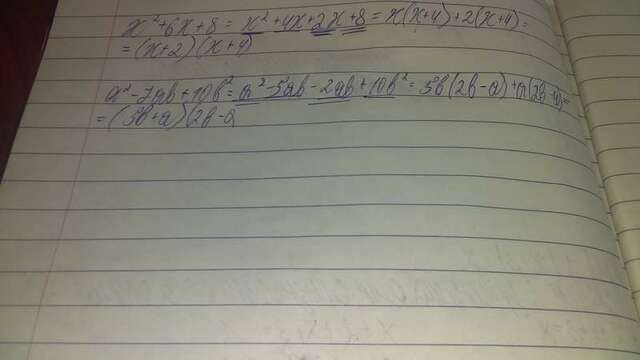 x²+6x+8 = x²+4x+2x+8 = x(x+4)+2(x+4)=
=(x+2)(x+4)
a²-7ab+10b²=a²-5ab-2ab+10b²=5b(2b-a)+a(2b-a)=
=(5b+a)(2b-a